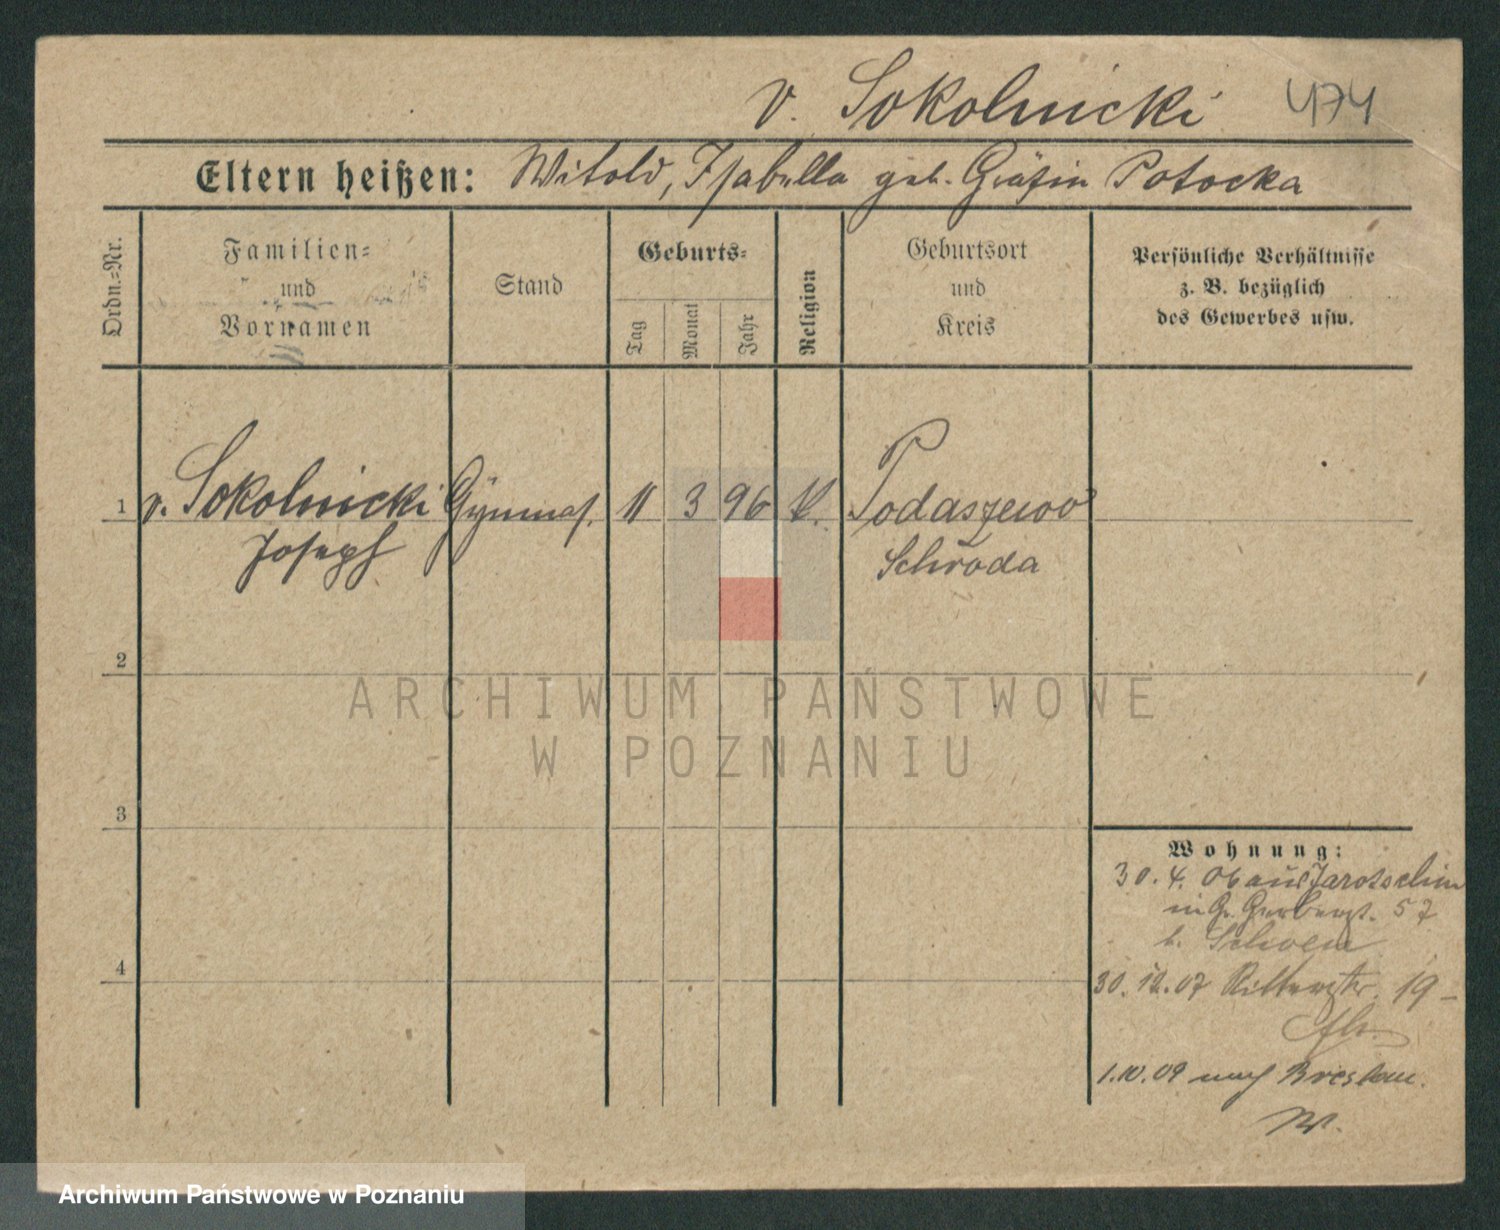 v. Sokolnicki 474
Eltern heißen: Witold, Isabella geb. Gräfin Potocka
Ordn.-Nr.
Familien-
und
Vornamen
Stand
Geburts-
Tag
Monat
Jahr
Religion
Geburtsort
und
Kreis
Persönliche Verhältnisse
z. B. bezüglich
des Gewerbes usw.
1 v. Sokolnicki Gymnas. 11 3 96 k. Podaszewo
Joseph Schroda
2
3
4
ARCHIWUM PAŃSTWOWE
W POZNANIU
Wohnung:
30. 4. 06 aus Jarotschin
in Gr. Gerberst. 57
b.
30. 12. 07 Ritterstr. 19
1.10.09 nach Breslau.
Archiwum Państwowe w Poznaniu